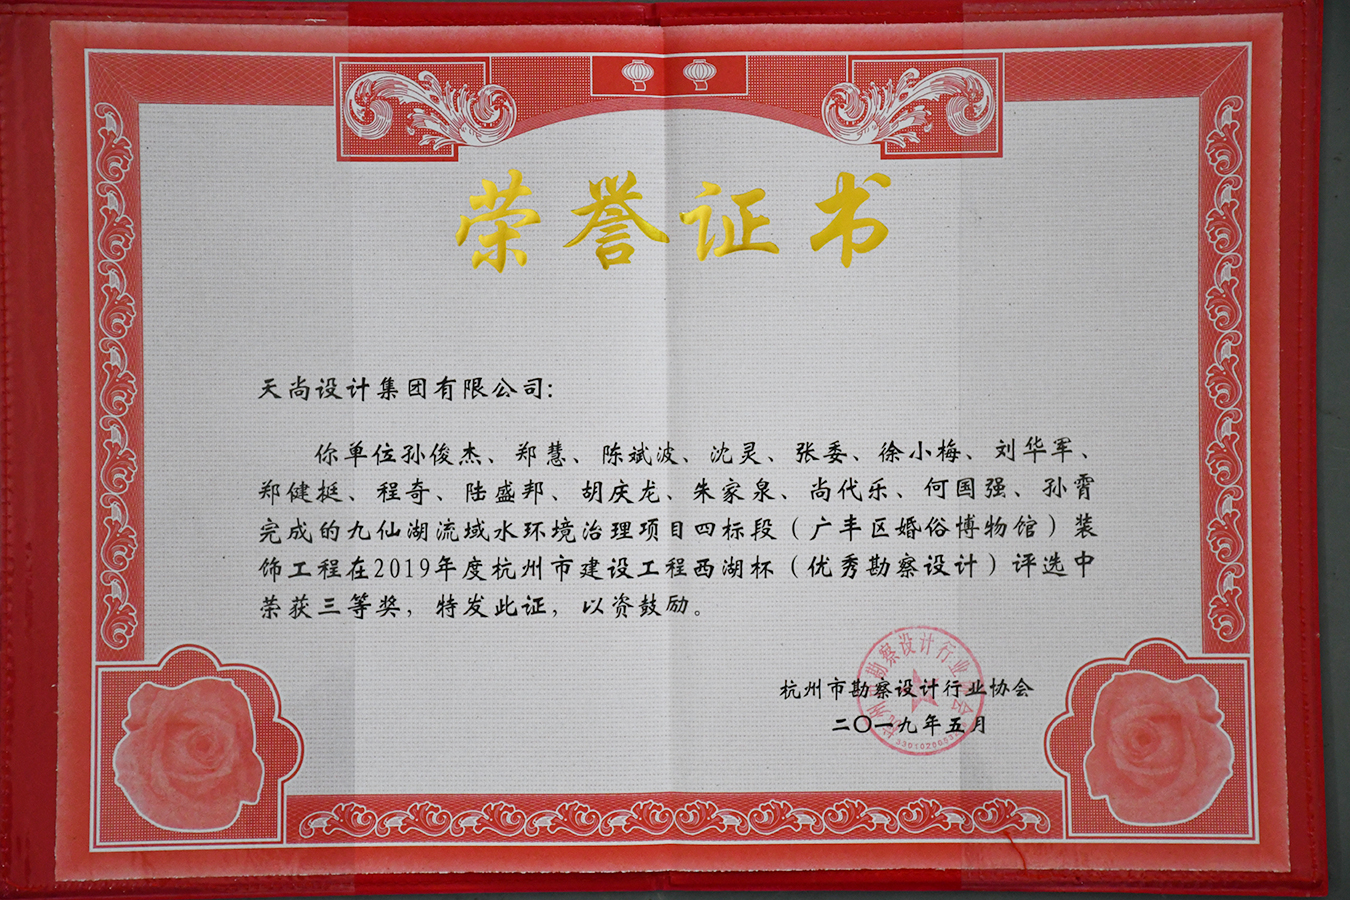 荣誉证书
天尚设计集团有限公司:
你单位孙俊杰、郑慧、陈斌波、沈灵、张委、徐小梅、刘华军、
郑健挺、程奇、陆盛邦、胡庆龙、朱家泉、尚代乐、何国强、孙霄
完成的九仙湖流域水环境治理项目四标段（广丰区婚俗博物馆）装
饰工程在2019年度杭州市建设工程西湖杯（优秀勘察设计）评选中
荣获三等奖，特发此证，以资鼓励。
杭州市勘察设计行业协会
二〇一九年五月
杭州市勘察设计行业协会